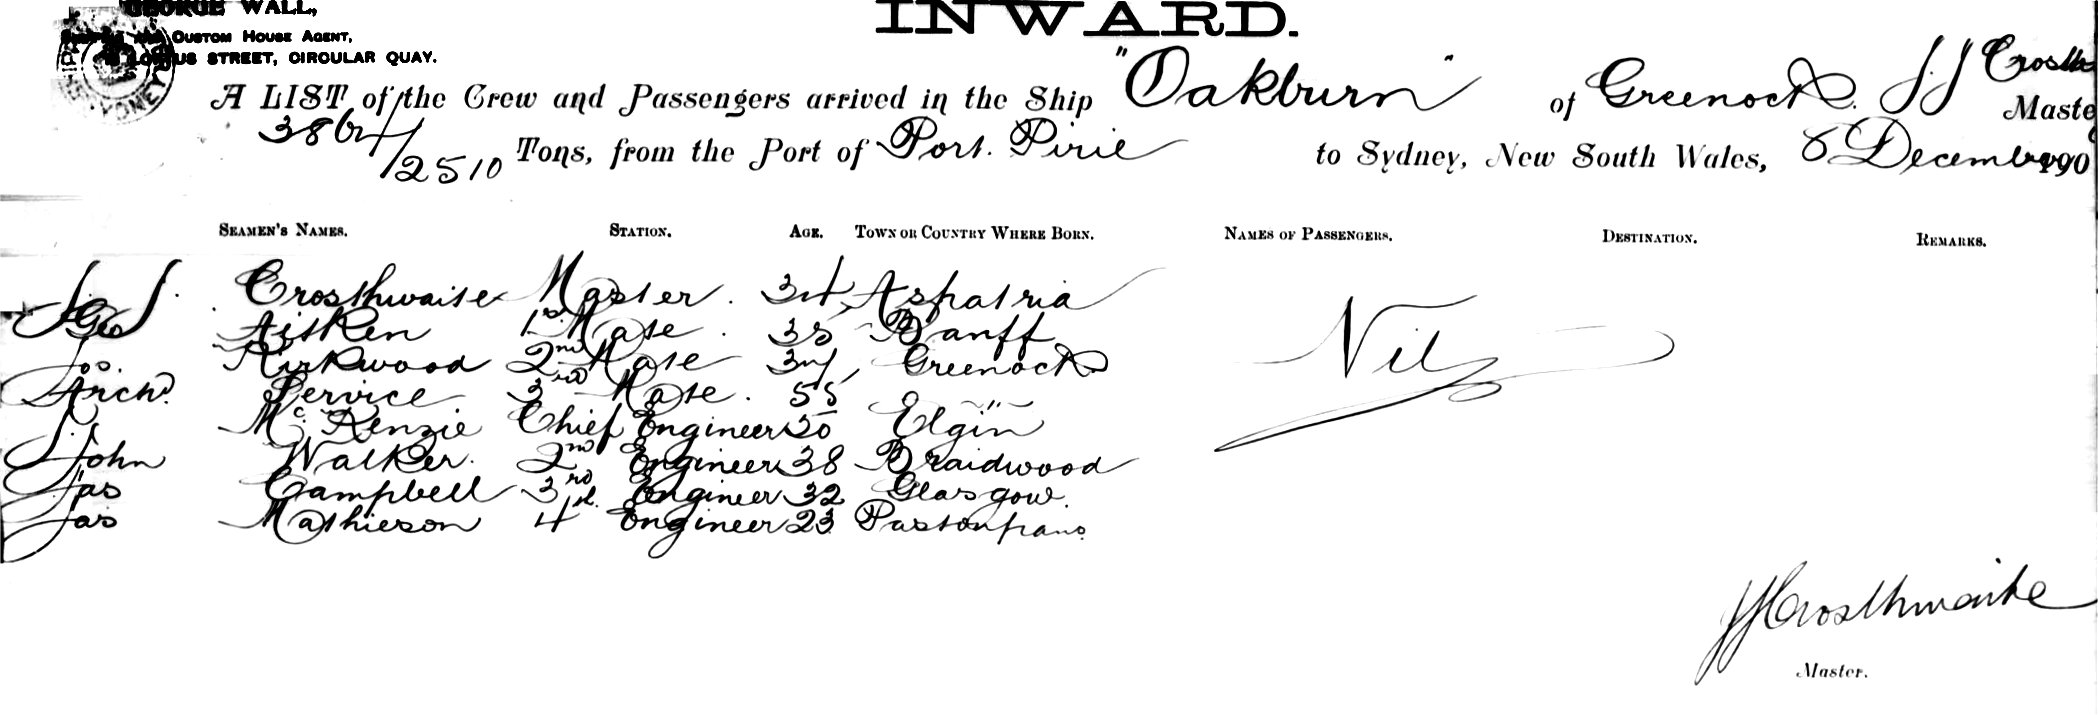 GEORGE WALL,
INWARD.
CUSTOM HOUSE AGENT,
STREET, CIRCULAR QUAY.
SYDNEY
A LIST of the Crew and Passengers arrived in the Ship "Oakburn" of Greenock. J J Crosth
Maste
3864/2510 Tons, from the Port of Port. Pirie to Sydney, New South Wales, 8 December 190
SEAMEN'S NAMES. STATION. AGE. TOWN OR COUNTRY WHERE BORN. NAMES OF PASSENGERS. DESTINATION. REMARKS.
J. J. Crosthwaite Master. 34 Aspatria
Geo Aitken 1st Mate. 38 Banff
Jos. Kirkwood 2nd Mate Greenock
Archd. Service 3rd Mate. 55 "
J. McKenzie Chief Engineer 50 Elgin
John Walker. 2nd Engineer 38 Braidwood
Jas Campbell 3rd Engineer 32 Glasgow.
Jas Mathieson 4th Engineer 23
Nil
JJ Crosthwaite
Master.